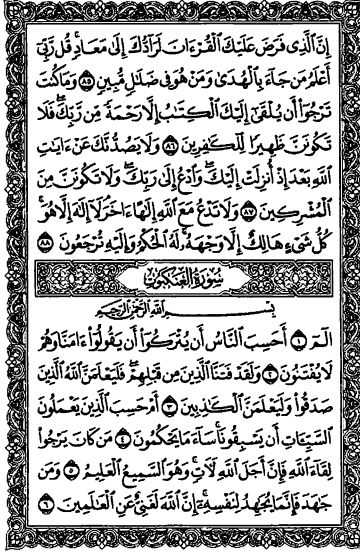 إِنَّ ٱلَّذِى فَرَضَ عَلَيْكَ ٱلْقُرْءَانَ لَرَآدُّكَ إِلَىٰ مَعَادٍ ۚ قُل رَّبِّىٓ
أَعْلَمُ مَن جَآءَ بِٱلْهُدَىٰ وَمَنْ هُوَ فِى ضَلَٰلٍ مُّبِينٍ ٨٥ وَمَا كُنتَ
تَرْجُوٓا۟ أَن يُلْقَىٰٓ إِلَيْكَ ٱلْكِتَٰبُ إِلَّا رَحْمَةً مِّن رَّبِّكَ ۖ فَلَا
تَكُونَنَّ ظَهِيرًا لِّلْكَٰفِرِينَ ٨٦ وَلَا يَصُدُّنَّكَ عَنْ ءَايَٰتِ
ٱللَّهِ بَعْدَ إِذْ أُنزِلَتْ إِلَيْكَ ۖ وَٱدْعُ إِلَىٰ رَبِّكَ ۖ وَلَا تَكُونَنَّ مِنَ
ٱلْمُشْرِكِينَ ٨٧ وَلَا تَدْعُ مَعَ ٱللَّهِ إِلَٰهًا ءَاخَرَ ۘ لَآ إِلَٰهَ إِلَّا هُوَ ۚ
كُلُّ شَىْءٍ هَالِكٌ إِلَّا وَجْهَهُۥ ۚ لَهُ ٱلْحُكْمُ وَإِلَيْهِ تُرْجَعُونَ ٨٨
سُورَةُ العَنكَبُوتِ
بِسْمِ ٱللَّهِ ٱلرَّحْمَٰنِ ٱلرَّحِيمِ
الٓمٓ ١ أَحَسِبَ ٱلنَّاسُ أَن يُتْرَكُوٓا۟ أَن يَقُولُوٓا۟ ءَامَنَّا وَهُمْ
لَا يُفْتَنُونَ ٢ وَلَقَدْ فَتَنَّا ٱلَّذِينَ مِن قَبْلِهِمْ ۖ فَلَيَعْلَمَنَّ ٱللَّهُ ٱلَّذِينَ
صَدَقُوا۟ وَلَيَعْلَمَنَّ ٱلْكَٰذِبِينَ ٣ أَمْ حَسِبَ ٱلَّذِينَ يَعْمَلُونَ
ٱلسَّيِّـَٔاتِ أَن يَسْبِقُونَا ۚ سَآءَ مَا يَحْكُمُونَ ٤ مَن كَانَ يَرْجُوا۟
لِقَآءَ ٱللَّهِ فَإِنَّ أَجَلَ ٱللَّهِ لَـَٔاتٍ ۚ وَهُوَ ٱلسَّمِيعُ ٱلْعَلِيمُ ٥ وَمَن
جَٰهَدَ فَإِنَّمَا يُجَٰهِدُ لِنَفْسِهِۦٓ ۚ إِنَّ ٱللَّهَ لَغَنِىٌّ عَنِ ٱلْعَٰلَمِينَ ٦